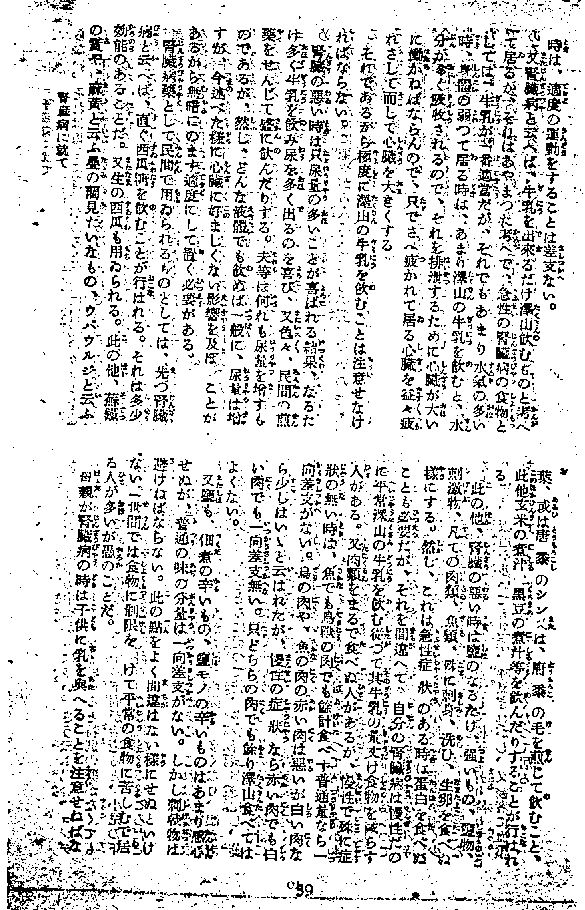 時は、適度の運動をすることは差支ない。
又腎臓病と云へば、牛乳を出來るだけ澤山飮むものと考へ
て居るが、それはあやまつた考へで、急性の腎臓病の食物と
しては、牛乳が一番適當だが、それでもあまり水氣の多い
時、身體の弱つて居る時は、あまり澤山の牛乳を飮むと、水
分が多く吸收されるので、それを排泄するために心臓が大い
に働かねばならんので、只でさへ疲かれて居る心臓を益々疲
れさして而して心臓を大きくする。
それであるから極度に澤山の牛乳を飮むことは注意せなけ
ればならない。
腎臓の悪い時は只尿量の多いことが喜ばれる結果、なるた
け多く牛乳を飮み尿を多く出るのを喜び、又色々、民間の煎
藥をせんじて盛に飮んだりする。夫等は何れも尿量を增すも
のであるが、然し、どんな液體でも飮めば一般に、尿量は增
すが、今述べた樣に心臓に好ましくない影響を及ぼすことが
あるから無暗にのまず適度にして置く必要がある。
腎臓病藥として民間で用ゐられるものとしては、先づ腎臓
病と云へば、直ぐ西瓜糖を飮むことが行はれる。それは多少
効能のあることだ。又生の西瓜も用ゐられる。此の他、蘇鐵
の實や、硫黃と云ふ墨の固見たいなもの、ウバウルジと云ふ
腎臓病に就て
葉、或は唐黍のシンベは、唐黍の毛を煎じて飮むこと、
此他玄米の煮汁、黑豆の煮汁等を飮んだりすることが行はれ
る。
此の他、腎臓の悪い時は鹽のなるだけ、強いもの、鹽物、
刺激物、凡ての肉類、魚類、殊に刺身、洗ひ、生卵を食べぬ
樣にする。然し、これは急性症狀のある時は蛋白を食べぬ
ことも必要だが、それを間違へて、自分の腎臓病は慢性だの
に平常澤山の牛乳を飮む從つて其牛乳の量丈け食物を減らす
人がある。又肉類をまるで食べぬ人があるが、慢性で殊に症
狀の無い時は、魚でも鳥獸の肉でも餘計食べず普通量なら一
向差支がない。鳥の肉や、魚の肉の赤い肉は悪いが白い肉な
ら少しはいゝと云はれたが、慢性の症狀なら赤い肉でも白
い肉でも一向差支無い。只どちらの肉でも餘り澤山食べては
よくない。
又鹽も、佃煮の辛いもの、鹽モノの辛いものはあまり感心
せぬが、普通の味の分量は一向差支がない。しかし刺激物は
避けねばならない。此の點をよく間違はない樣にせぬといけ
ない。世間では食物に制限をつけて平常の食物に苦しむで居
る人が多いが愚のことだ。
母親が腎臓病の時は子供に乳を與へることを注意せねばな
59